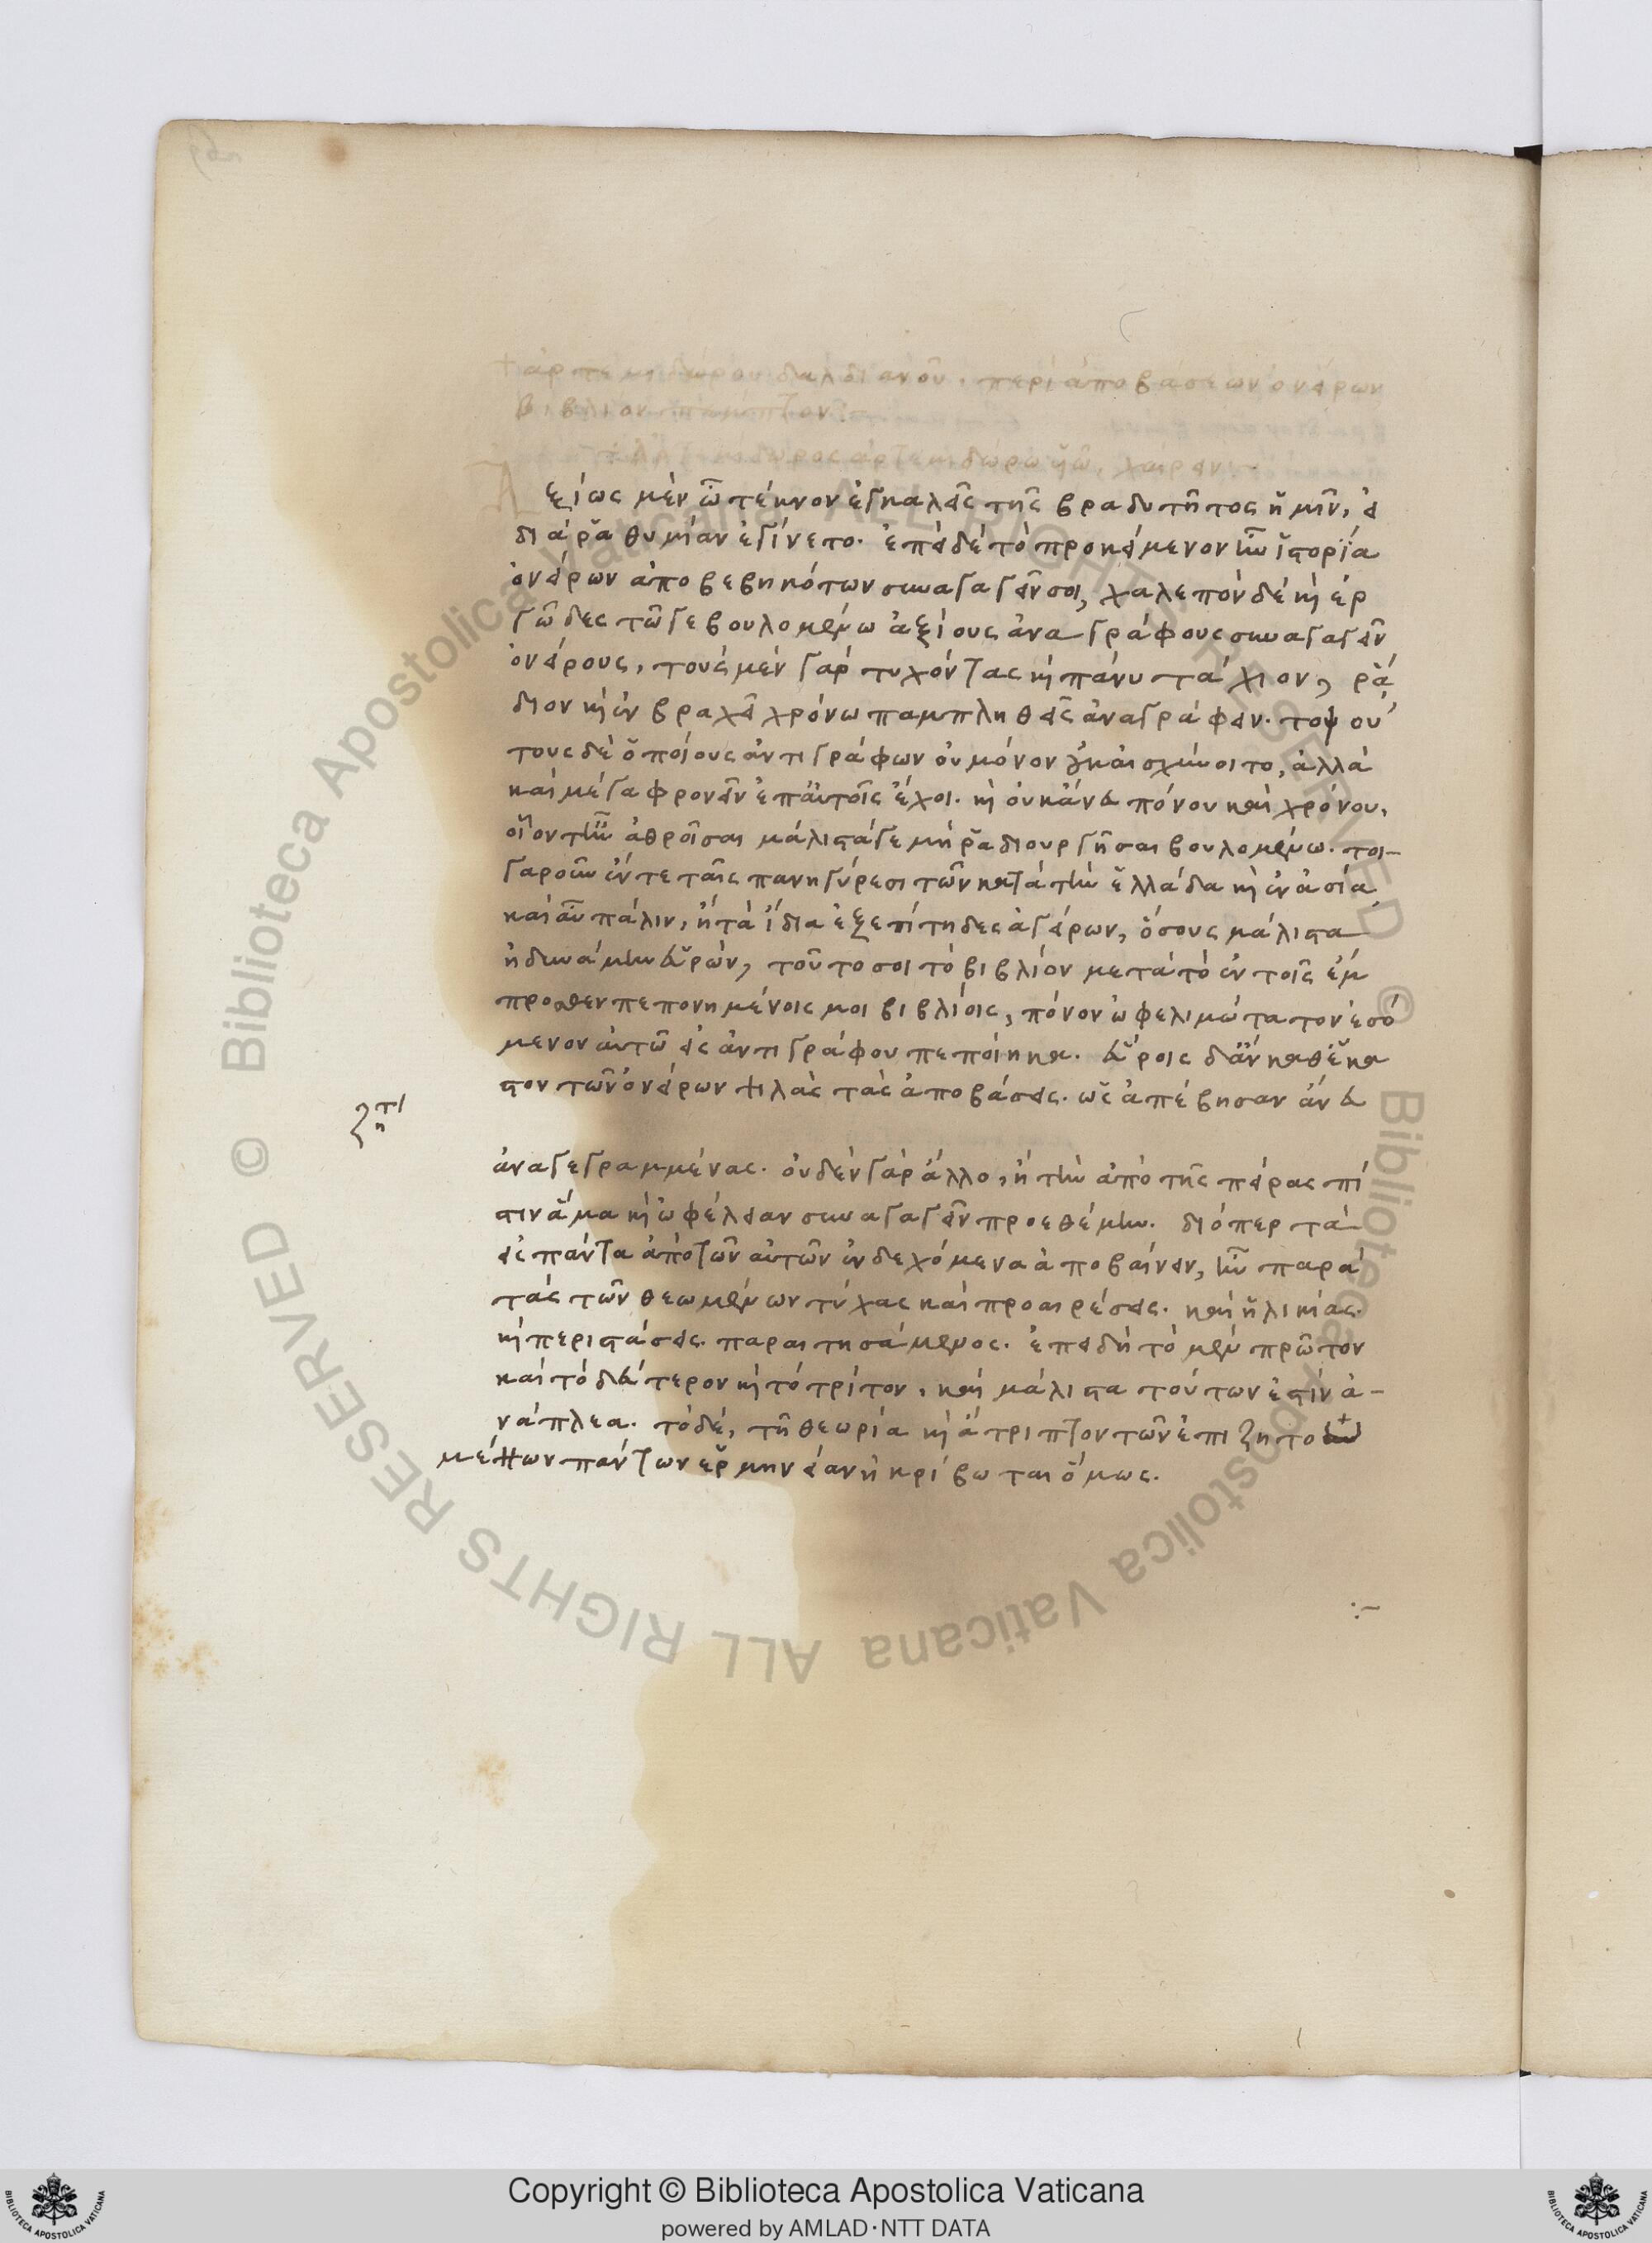 + ἀρτεμιδώρου δαλδιανοῦ, περὶ ἀποβάσεων ὀνείρων
βιβλίον πέμπτον
ἀρτεμίδωρος ἀρτεμιδώρω υἱῶ, χαίρειν
Ἀξίως μὲν ὦ τέκνον ἐγκαλεῖς τῆς βραδυτῆτος ἡμῖν, εἰ
διὰ ῥαθυμίαν ἐγίνετο. ἐπεὶ δὲ τὸ προκείμενον ἦν ἱστορία
ὀνείρων ἀποβεβηκότων συναγαγεῖν σοι, χαλεπὸν δὲ κὴ ἐρ
γῶδες τῶ γε βουλομένω ἀξίους ἀναγράφους συναγαγεῖν
ὀνείρους, τοὺς μὲν γὰρ τυχόντας κὴ πάνυ τάχιον, ῥά
διον κὴ ἐν βραχεῖ χρόνω παμπληθεῖς ἀναγράφειν. τοὺς οὐ
τους δὲ ὁποίους ἀντιγράφων οὐ μόνον οὐκ αἰσχύνοιτο, ἀλλὰ
καὶ μέγα φρονεῖν ἐπ' αὐτοῖς ἔχοι. κὴ οὐκ ἄνευ πόνου καὶ χρόνου,
οἷον τ' ἦν ἀθροῖσαι μάλιστά γε μὴ ῥαδιουργῆσαι βουλομένω. τοι-
γαροῦν ἔν τε ταῖς πανηγύρεσι τῶν κατὰ τὴν ἑλλάδα κὴ ἐν ἀσία
καὶ αὖ πάλιν, ἢ τὰ ἴδια ἐξεπίτηδες ἀγείρων, ὅσους μάλιστα
ἠδυνάμην εὑρών, τοῦτο σοι τὸ βιβλίον μετὰ τὸ ἐν τοῖς ἐμ
προσθεν πεπονημένοις μοι βιβλίοις, πόνον ὠφελιμώτατον ἐσό
μενον αὐτῶ εἰς ἀντιγράφου πεποίηκα. εὕροις δ' ἂν καθ' ἕκα
στον τῶν ὀνείρων ψιλὰς τὰς ἀποβάσεις. ὡς ἀπέβησαν ἄνευ
ζητη
ἀναγεγραμμένας. οὐδὲν γὰρ ἄλλο, ἢ τὴν ἀπὸ τῆς πείρας πί
στιν ἅμα κὴ ὠφέλειαν συναγαγεῖν προεθέμην. διόπερ τὰ
εἰς πάντα ἀπὸ τῶν αὐτῶν ἐνδεχόμενα ἀποβαίνειν, ἦν παρὰ
τὰς τῶν θεωμένων τύχας καὶ προαιρέσεις. καὶ ἡλικίας.
κὴ περιστάσεις. παραιτησάμενος. ἐπειδὴ τὸ μὲν πρῶτον
καὶ τὸ δεύτερον κὴ τὸ τρίτον, καὶ μάλιστα τούτων ἐστὶν ἀ-
νάπλεα. τὸ δὲ, τῆ θεωρία κὴ ἄτριπτον τῶν ἐπιζητο
μένων πάντων ἑρμηνείαν ἠκρίβωται ὅμως.
:~
Copyright © Biblioteca Apostolica Vaticana
powered by AMLAD·NTT DATA